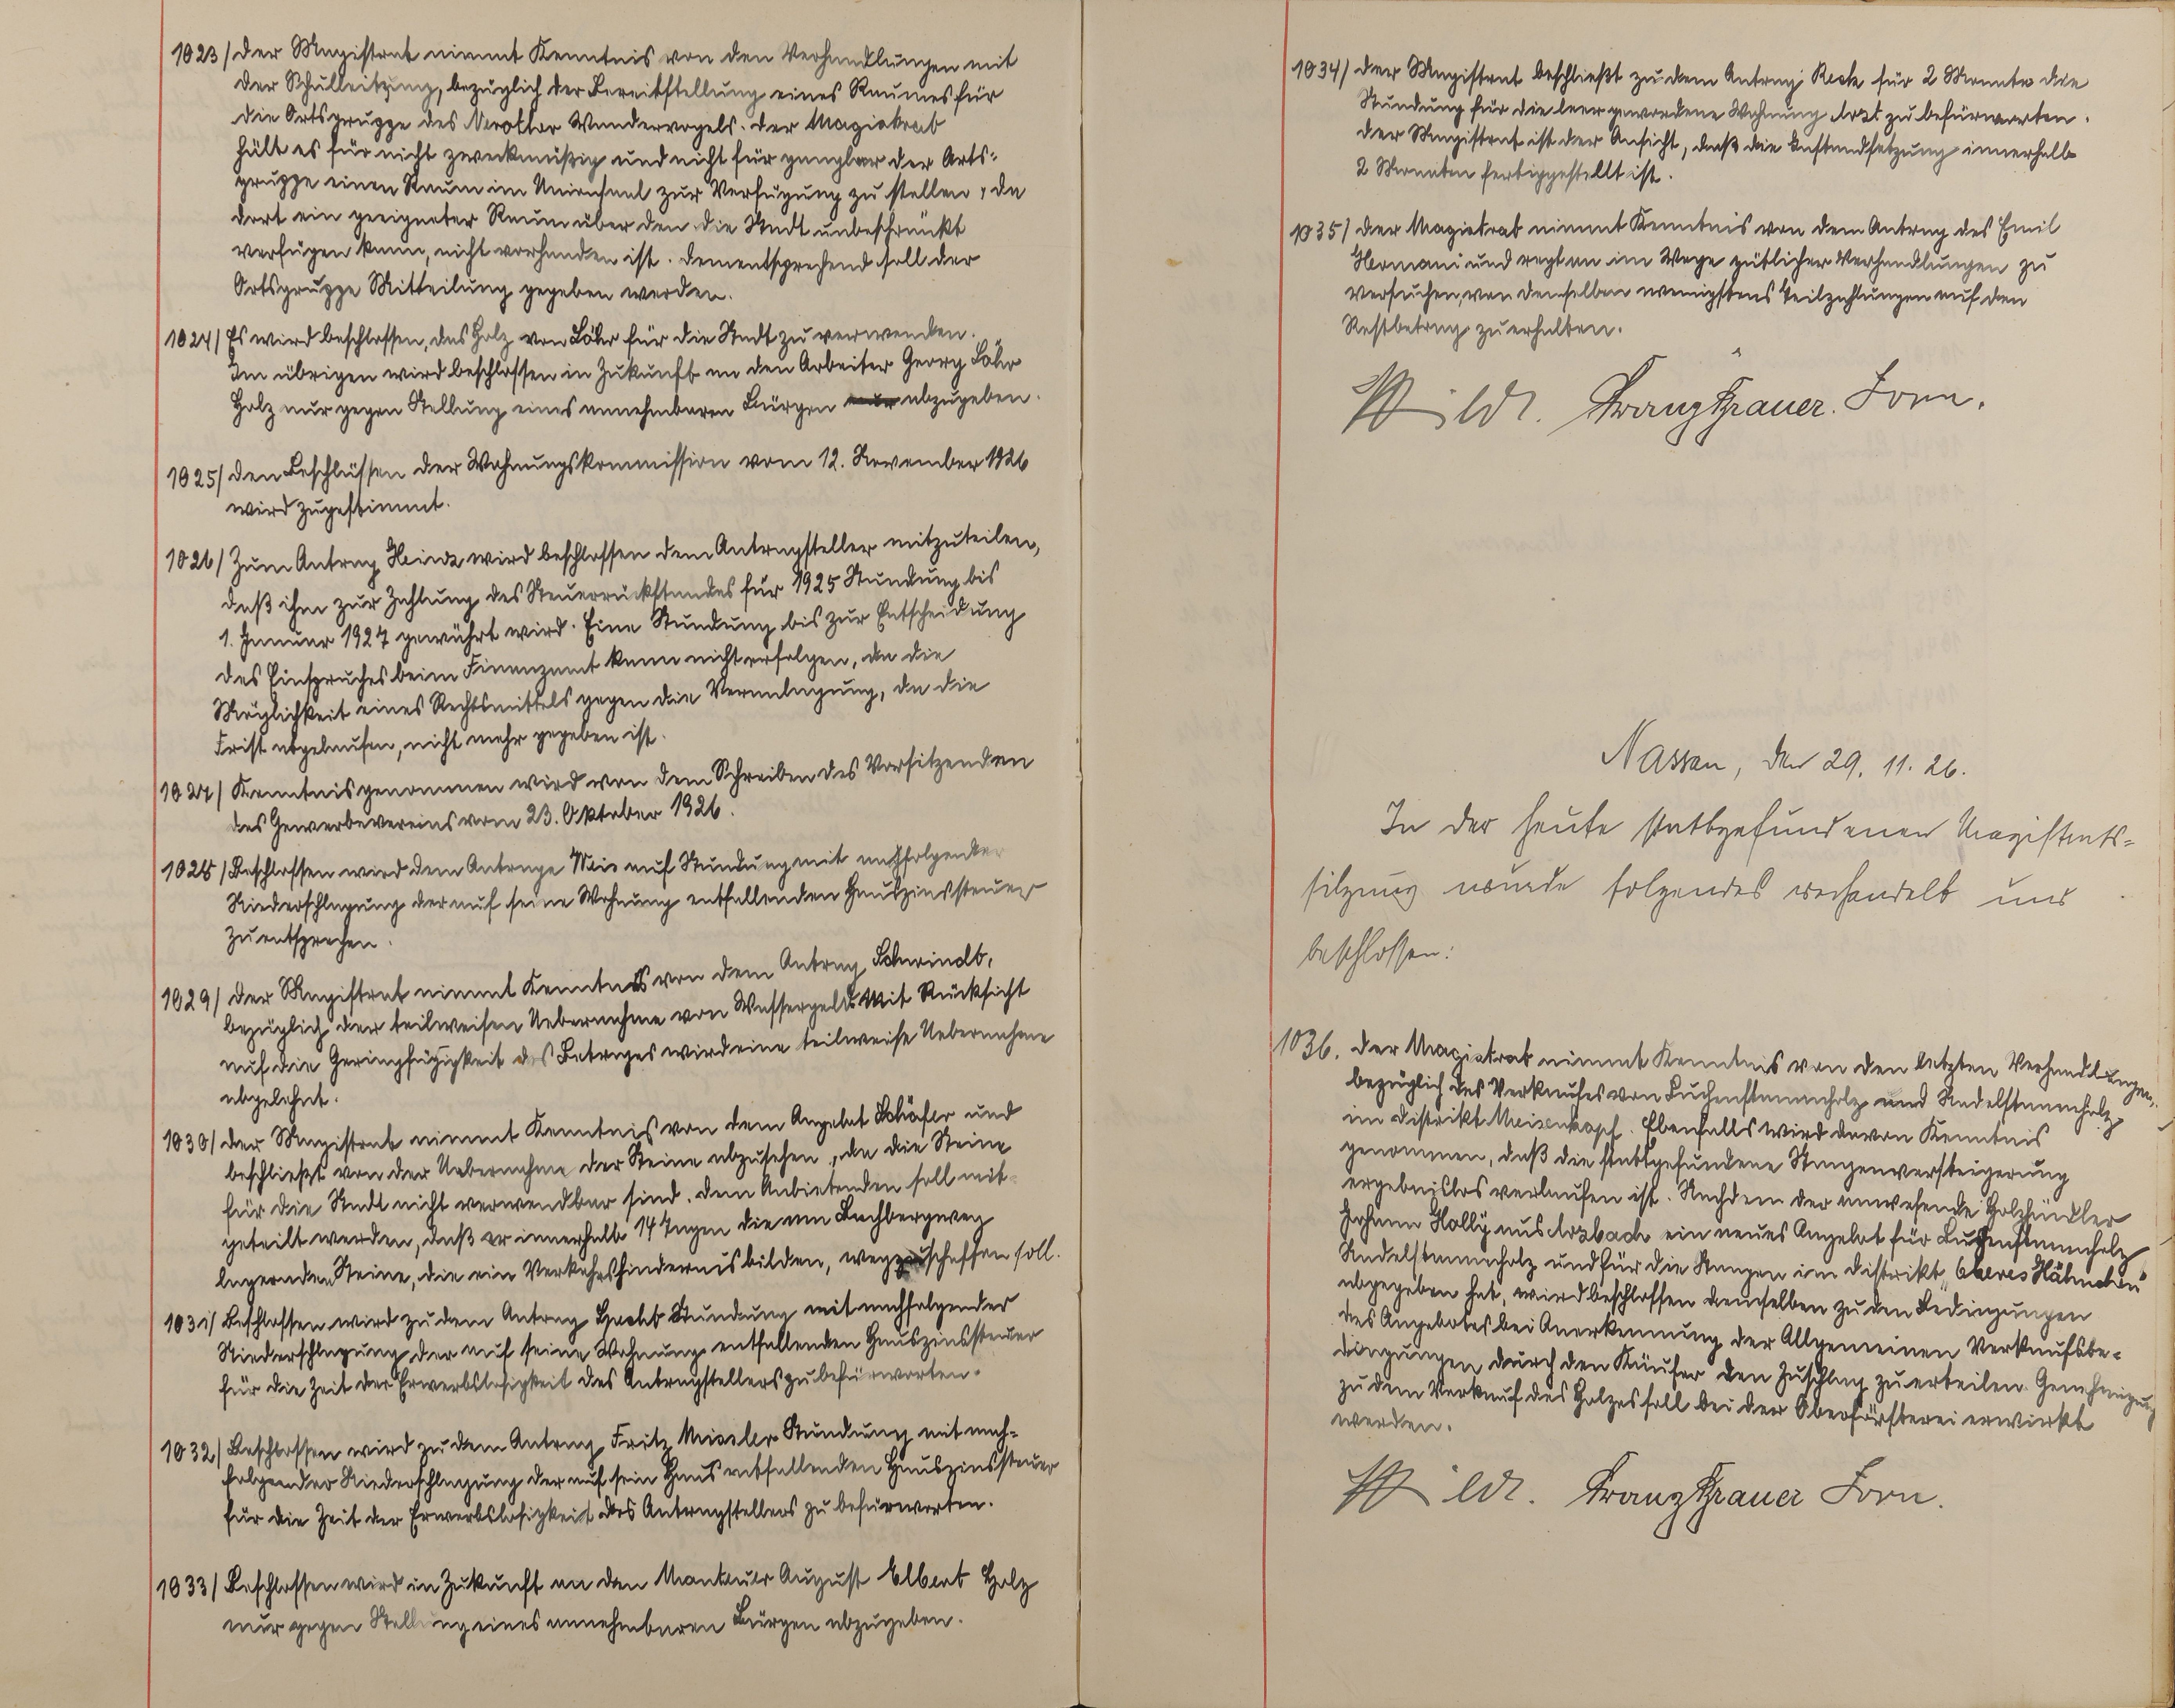 1023/ Der Magistrat nimmt Kenntnis von den Verhandlungen mit
der Schulleitung, bezüglich der Bereitstellung eines Raumes für
die Ortsgruppe des Nerother Wandervogels. Der Magistrat
hält es für nicht zweckmäßig und nicht für gangbar der Orts-
gruppe einen Raum im Unionsaal zur Verfügung zu stellen, da
dort ein geeigneter Raum über den die Stadt unbeschränkt
verfügen kann, nicht vorhanden ist. Dementsprechend soll der
Ortsgruppe Mitteilung gegeben werden.
1024/ Es wird beschlossen, das Holz von Löhr für die Stadt zu verwenden.
Im übrigen wird beschlossen in Zukunft an den Arbeiter Georg Löhr
Holz nur gegen Stellung eines annehmbaren Bürgen abzugeben.
1025/ Den Beschlüssen der Wohnungskommission vom 12. November 1926
wird zugestimmt.
1026/ Zum Antrag wird beschlossen dem Antragsteller mitzuteilen,
daß ihm zur Zahlung des Steuerrückstandes für 1925 Stundung bis
1. Januar 1927 gewährt wird. Eine Stundung bis zur Entscheidung
des Einspruches beim Finanzamt kann nicht erfolgen, da die
Möglichkeit eines Rechtsmittels gegen die Veranlagung, da die
Frist abgelaufen, nicht mehr gegeben ist.
1027/ Kenntnis genommen wird von dem Schreiben des Vorsitzenden
des Gewerbevereins vom 23. Oktober 1926.
1028/ Beschlossen wird dem Antrage auf Stundung mit nachfolgender
Niederschlagung der auf seine Wohnung entfallenden Hauszinssteuer
zu entsprechen.
1029/ Der Magistrat nimmt Kenntnis von dem Antrag Schwindt,
bezüglich der teilweisen Uebernahme von Wassergeld. Mit Rücksicht
auf die Geringfügigkeit des Betrages wird eine teilweise Uebernahme
abgelehnt.
1030/ Der Magistrat nimmt Kenntnis von dem Angebot Schäfer und
beschließt von der Uebernahme der Steine abzusehen, da die Steine
für die Stadt nicht verwendbar sind. Dem Anbietenden soll mit-
geteilt werden, daß er innerhalb 14 Tagen die am Bachbergweg
lagernden Steine, die ein Verkehrshindernis bilden, wegzuschaffen soll.
1031/ Beschlossen wird zu dem Antrag Stundung mit nachfolgender
Niederschlagung der auf seine Wohnung entfallenden Hauszinssteuer
für die Zeit der Erwerbslosigkeit des Antragstellers zu befürworten.
1032/ Beschlossen wird zu dem Antrag Fritz Stundung mit nach-
folgender Niederschlagung der auf sein Haus entfallenden Hauszinssteuer
für die Zeit der Erwerbslosigkeit des Antragstellers zu befürworten.
1033/ Beschlossen wird in Zukunft an den Monteur August Elbert Holz
nur gegen Stellung eines annehmbaren Bürgen abzugeben.
1034/ Der Magistrat beschließt zu dem Antrag Reck für 2 Monate die
Stundung für die leer gewordene Wohnung dort zu befürworten.
Der Magistrat ist der Ansicht, daß die Instandsetzung innerhalb
2 Monaten fertiggestellt ist.
1035/ Der Magistrat nimmt Kenntnis von dem Antrag des Emil
Hermani und regt an im Wege gütlicher Verhandlungen zu
versuchen, von demselben wenigstens Teilzahlungen auf den
Restbetrag zu erhalten.
Franz Grauer.
Nassau, den 29. 11. 26.
In der heute stattgefundenen Magistrats-
sitzung wurde folgendes verhandelt und
beschlossen:
1036. Der Magistrat nimmt Kenntnis von den letzten Verhandlungen,
bezüglich des Verkaufes von Buchenstammholz und Nadelstammholz
im Distrikt Meisenkopf. Ebenfalls wird davon Kenntnis
genommen, daß die stattgefundene Stangenversteigerung
ergebnislos verlaufen ist. Nachdem der anwesende Holzhändler
Johann Holly aus Arzbach ein neues Angebot für Buchenstammholz
Nadelstammholz und für die Stangen im Distrikt „Oberes Hähnchen"
abgegeben hat, wird beschlossen demselben zu den Bedingungen
des Angebotes bei Anerkennung der Allgemeinen Verkaufsbe-
dingungen durch den Käufer den Zuschlag zu erteilen. Genehmigung
zu dem Verkauf des Holzes soll bei der Oberförsterei erwirkt
werden.
Franz Grauer